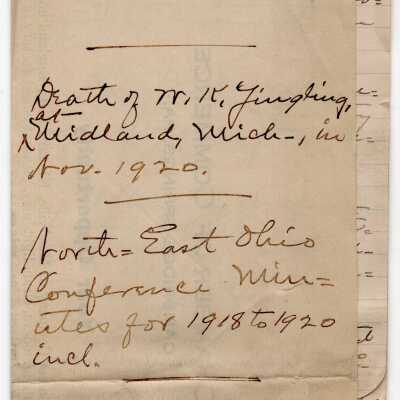 Death of W. K. Yingling,
at
Midland, Mich-, in
Nov. 1920.
North= East Ohio
Conference Min=
utes for 1918 to 1920
incl.